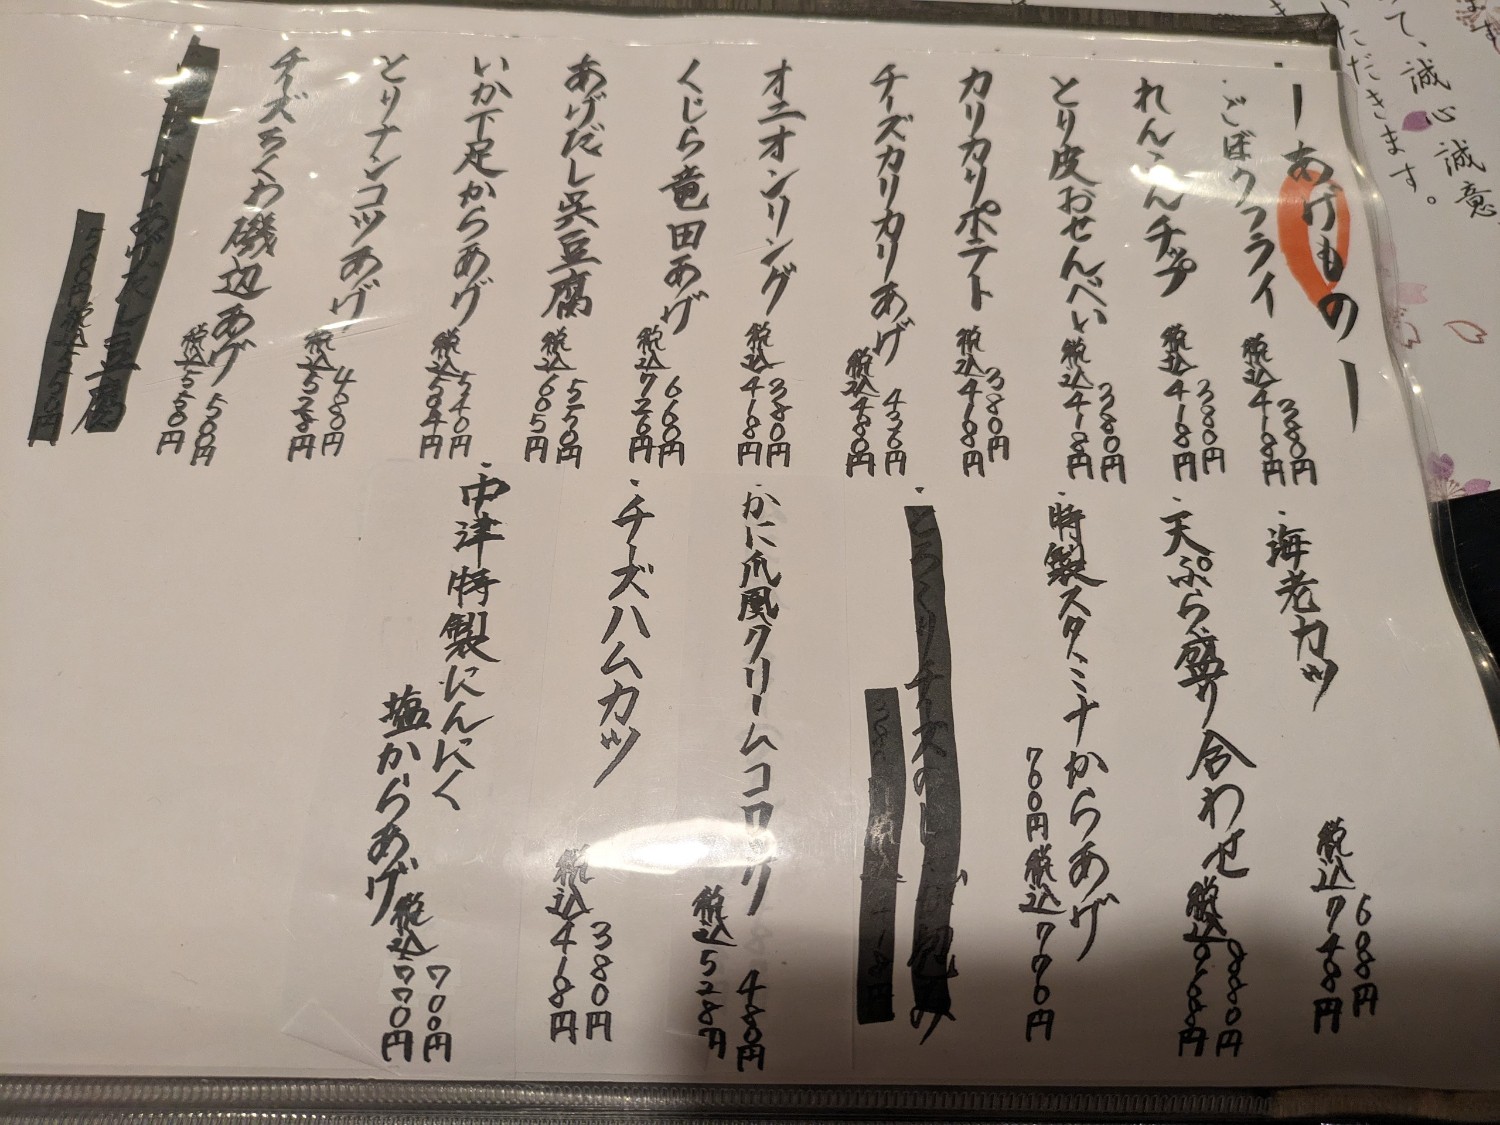 ーあげものー
・ごぼうフライ
380円
税込418円
れんこんチップ
380円
税込418円
とり皮おせんべい
380円
税込418円
カリカリポテト
380円
税込418円
チーズカリカリあげ
436円
税込480円
オニオンリング
380円
税込418円
くじら竜田あげ
660円
税込726円
あげだし呉豆腐
550円
税込605円
いか下足からあげ
540円
税込594円
とりナンコツあげ
480円
税込528円
チーズちくわ磯辺あげ
500円
税込550円
あげだし豆腐
500円税込550円
・海老カツ
680円
税込748円
・天ぷら盛り合わせ
880円
税込968円
・特製スタミナからあげ
700円税込770円
・とろ〜りチーズの
包み
・かに爪風クリームコロッケ
480円
税込528円
・チーズハムカツ
380円
税込418円
・中津特製にんにく
塩からあげ
700円
税込770円
て、誠心誠意
ただきます。